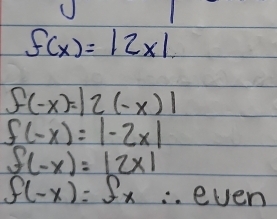 f(x)= |2x|.
f(-x)=|2(-x)|
f(-x)= |-2x|
f(-x)= |2x|
f(-x)= fx ∴ even